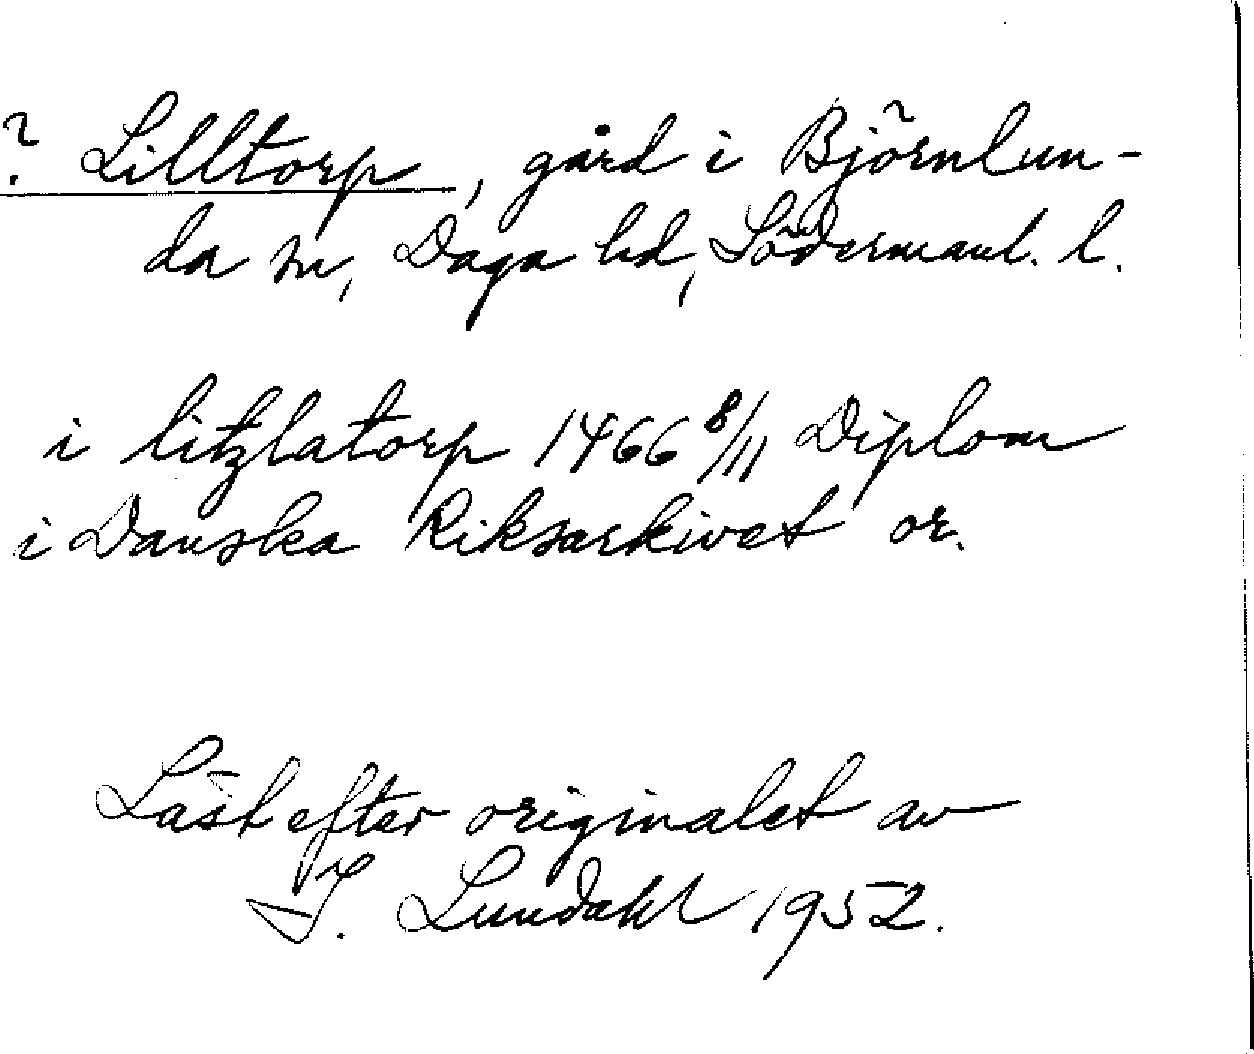 ? Lilltorp, gård i Björnlun-
da sn, Daga hd, Södermanl. l.
i litzlatorp 1466 8/11 Diplom
i Danska Riksarkivet or.
Läst efter originalet av
I. Lundahl 1952.